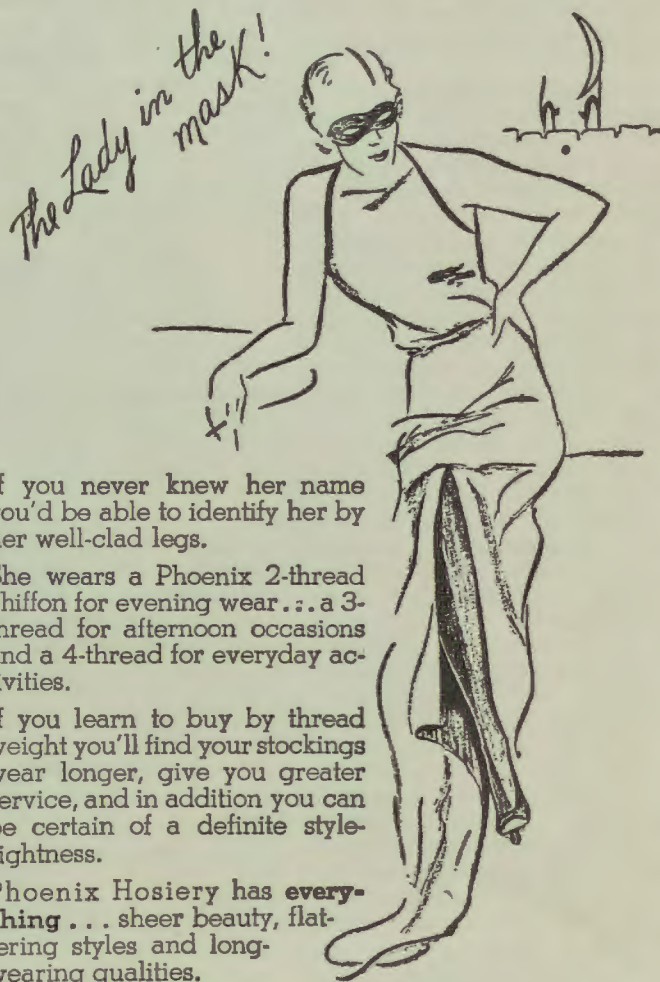 The Lady in the
mask!
f you never knew her name
you'd be able to identify her by
her well-clad legs.
She wears a Phoenix 2-thread
chiffon for evening wear... a 3-
thread for afternoon occasions
and a 4-thread for everyday ac-
tivities.
f you learn to buy by thread
weight you'll find your stockings
wear longer, give you greater
service, and in addition you can
be certain of a definite style-
rightness.
Phoenix Hosiery has every-
thing ... sheer beauty, flat-
tering styles and long-
wearing qualities.